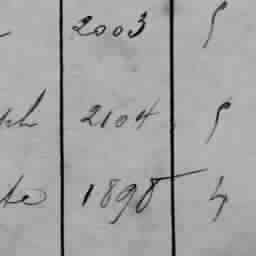 2003 5
ph 2104 5
te 1898 4